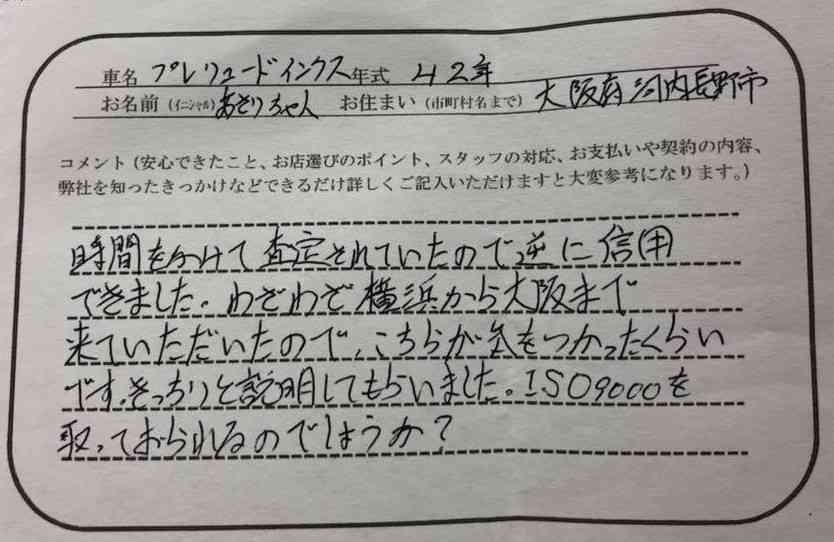 車名 プレリュードインクス 年式 42年
お名前(イニシャル)あさりちゃん お住まい(市町村名まで)大阪府河内長野市
コメント(安心できたこと、お店選びのポイント、スタッフの対応、お支払いや契約の内容、
弊社を知ったきっかけなどできるだけ詳しくご記入いただけますと大変参考になります。)
時間をかけて査定されていたので逆に信用
できました。わざわざ横浜から大阪まで
来ていただいたので、こちらが気をつかったくらい
です。きっちりと説明してもらいました。ISO9000を
取っておられるのでしょうか?